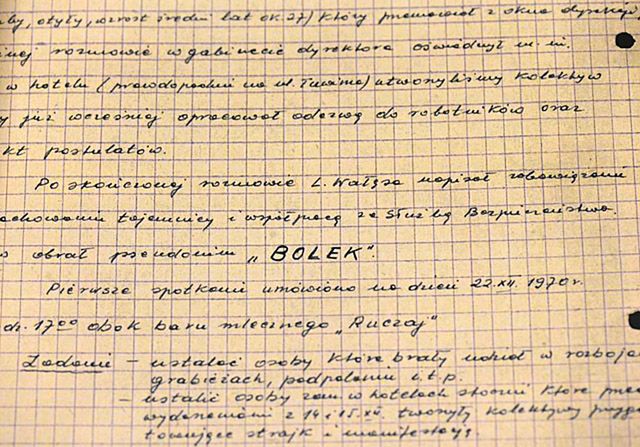 by, otyły, wzrost średni lat ok. 27/ który przemawiał z okna dyrekcji
nej rozmowie w gabinecie dyrektora oświadczył m.in.
w hotelu (prawdopodobnie na ul. Tuwima) utworzyliśmy kolektyw
y już wcześniej opracował odezwę do robotników oraz
kt postulatów.
Po skończonej rozmowie L. Wałęsa napisał zobowiązanie
zachowaniu tajemnicy i współpracy ze Służbą Bezpieczeństwa.
obrał pseudonim „BOLEK".
Pierwsze spotkanie umówiono na dzień 22.XII. 1970 r.
dz. 17⁰⁰ obok baru mlecznego „Ruczaj"
Zadanie – ustalać osoby które brały udział w rozboja
grabieżach, podpaleniu i.t.p.
– ustalić osoby zam. w hotelach stoczni które
wydarzeniami z 14 i 15.XII. tworzyły kolektywy przygo
towujące strajk i manifestację.